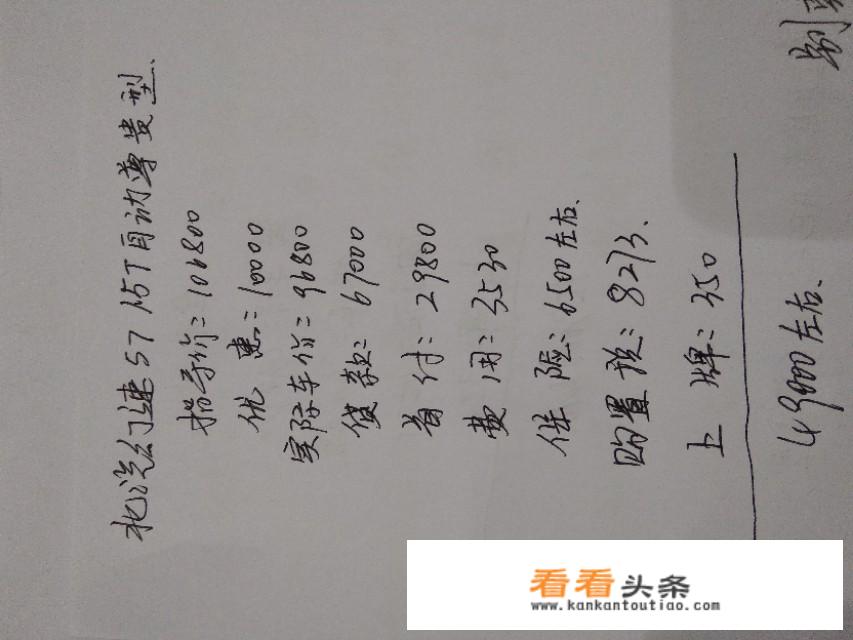 北汽幻速S7 1.5T自动尊贵型.
指导价:106800
优 惠:10000
实际车价:96800
贷款:67000
首付:29800
费用:3530
保 险:6500左右.
购置税:8273.
上 牌:350
49000左右.
看看头条
www.kankantoutiao.com